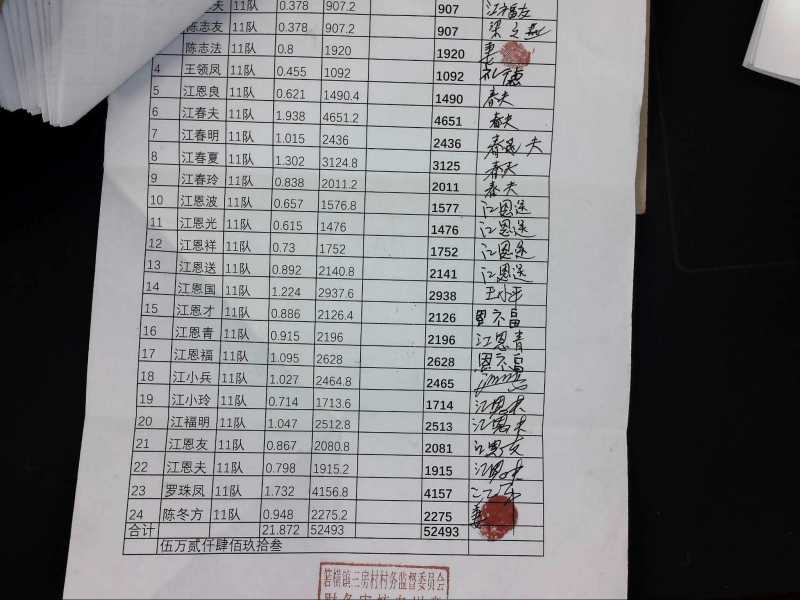 夫 11队 0.378 907.2 907 江福友
陈志友 11队 0.378 907.2 907
陈志法 11队 0.8 1920 1920
4 王领凤 11队 0.455 1092 1092
5 江恩良 11队 0.621 1490.4 1490 春夫
6 江春夫 11队 1.938 4651.2 4651 春夫
7 江春明 11队 1.015 2436 2436 春夫
8 江春夏 11队 1.302 3124.8 3125 春夫
9 江春玲 11队 0.838 2011.2 2011 春夫
10 江恩波 11队 0.657 1576.8 1577 江恩送
11 江恩光 11队 0.615 1476 1476 江恩送
12 江恩祥 11队 0.73 1752 1752 江恩送
13 江恩送 11队 0.892 2140.8 2141 江恩送
14 江恩国 11队 1.224 2937.6 2938
15 江恩才 11队 0.886 2126.4 2126
16 江恩青 11队 0.915 2196 2196 江恩青
17 江恩福 11队 1.095 2628 2628
18 江小兵 11队 1.027 2464.8 2465
19 江小玲 11队 0.714 1713.6 1714 江恩夫
20 江福明 11队 1.047 2512.8 2513 江恩夫
21 江恩友 11队 0.867 2080.8 2081 江恩友
22 江恩夫 11队 0.798 1915.2 1915 江恩夫
23 罗珠凤 11队 1.732 4156.8 4157
24 陈冬方 11队 0.948 2275.2 2275
合计 21.872 52493 52493
伍万贰仟肆佰玖拾叁
箬横镇三房村村务监督委员会